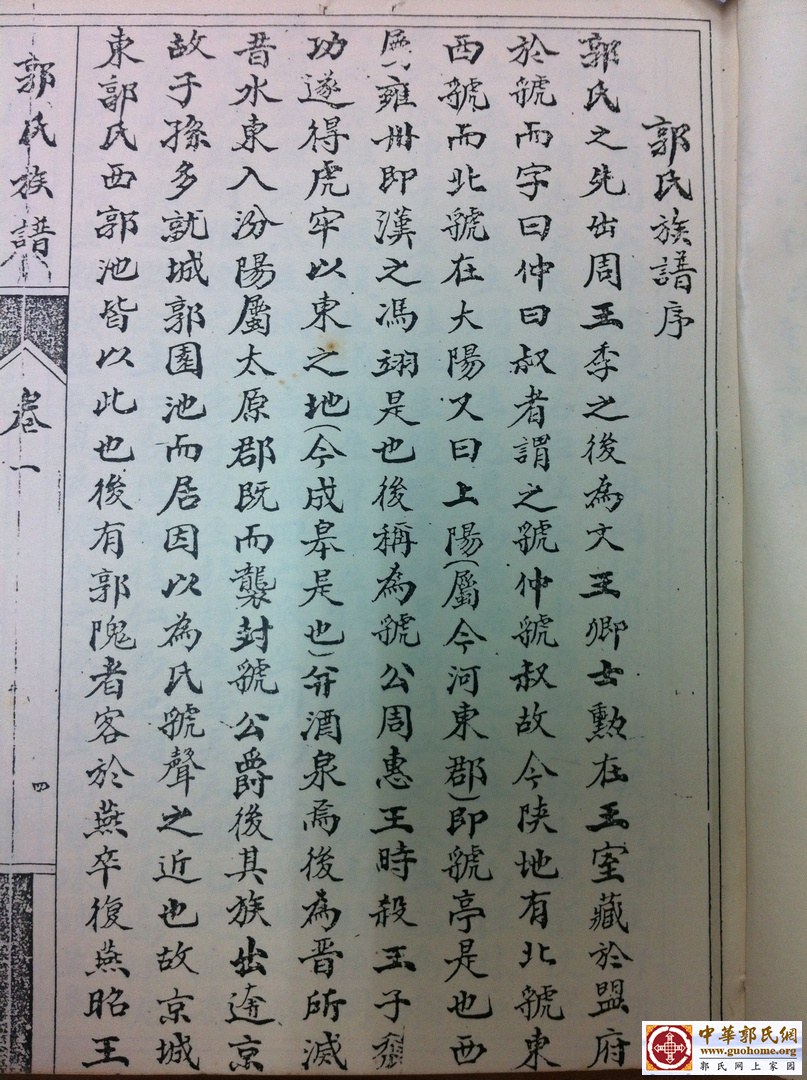 郭氏族譜序
郭氏之先出周王季之後為文王卿士勲在王室藏於盟府
於虢而字曰仲曰叔者謂之虢仲虢叔故今陕地有北虢東
西虢而北虢在大陽又曰上陽(屬今河東郡)即虢亭是也西
屬雍州即漢之馮翊是也後稱為虢公周惠王時殺王子
功遂得虎牢以東之地(今成皋是也)并酒泉焉後為晉所滅
昔水東入汾陽屬太原郡既而襲封虢公爵後其族出逩京
故子孫多就城郭園池而居因以為氏虢聲之近也故京城
東郭氏西郭池皆以此也後有郭隗者客於燕卒復燕昭王
郭氏族譜
卷一
四
中華郭氏網
www.guohome.org
郭氏网上家园